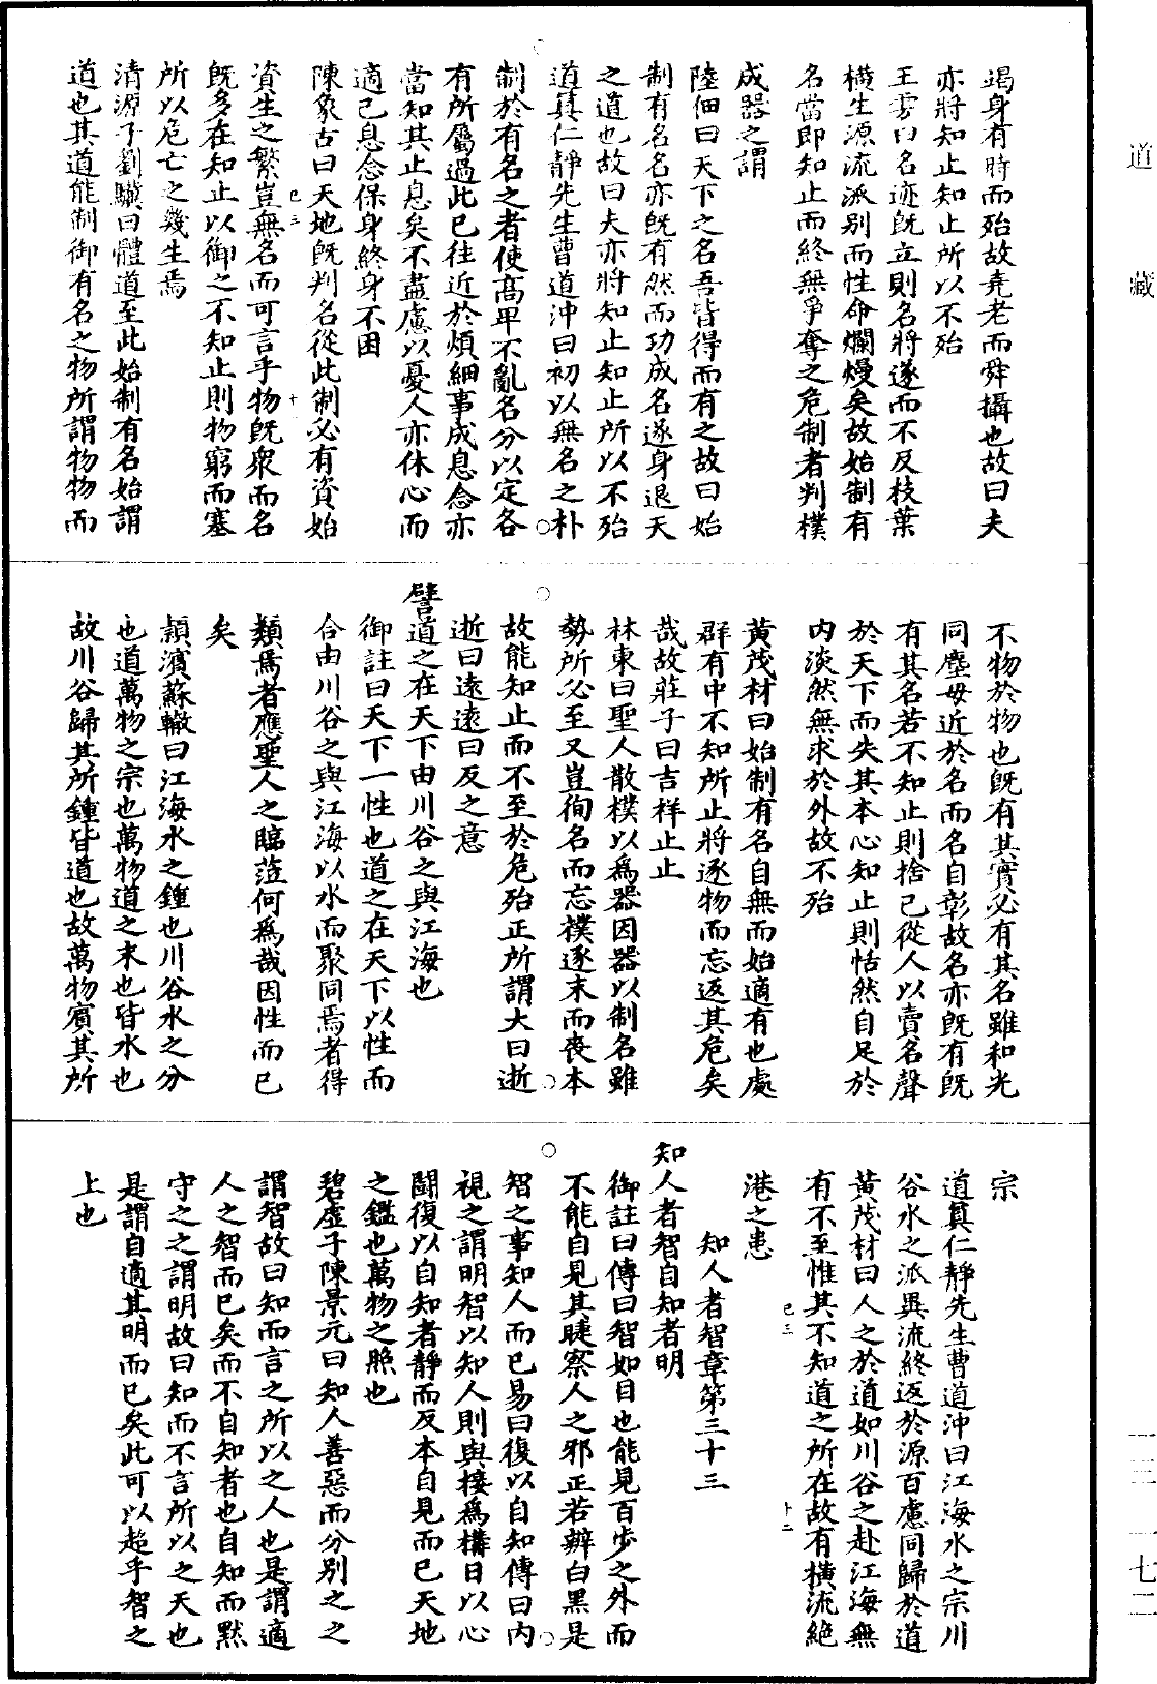 竭身有時而殆故堯老而舜攝也故曰夫
亦將知止知止所以不殆
王雱曰名迹既立則名將遂而不及枝葉
橫生源流派別而性命爛熳矣故始制有
名當即知止而終無爭奪之危制者判樸
成器之謂
陸佃曰天下之名吾皆得而有之故曰始
制有名名亦既有然而功成名遂身退天
之道也故曰夫亦將知止知止所以不殆
道真仁靜先生曹道沖曰初以無名之朴
制於有名之者使高卑不亂名分以定各
有所屬過此已往近於煩細事成息念亦
當知其止息矣不盡慮以憂人亦休心而
適己息念保身終身不困
陳象古曰天地既判名從此制必有資始
資生之繁豈無名而可言乎物既衆而名
既多在知止以御之不知止則物窮而塞
所以危亡之幾生焉
清源子劉驥曰體道至此始制有名始謂
道也其道能制御有名之物所謂物物而
不物於物也既有其實必有其名雖和光
同塵毋近於名而名自彰故名亦既有既
有其名若不知止則捨己從人以賣名聲
於天下而失其本心知止則恬然自足於
内淡然無求於外故不殆
黃茂材曰始制有名自無而始適有也處
群有中不知所止將逐物而忘返其危矣
哉故莊子曰吉祥止止
林東曰聖人散樸以爲器因器以制名雖
勢所必至又豈徇名而忘樸逐末而喪本
故能知止而不至於危殆正所謂大曰逝
逝曰遠遠曰反之意
譬道之在天下由川谷之與江海也
御註曰天下一性也道之在天下以性而
合由川谷之與江海以水而聚同焉者得
類焉者應聖人之臨莅何爲哉因性而已
矣
潁濱蘇轍曰江海水之鍾也川谷水之分
也道萬物之宗也萬物道之末也皆水也
故川谷歸其所鍾皆道也故萬物賓其所
宗
道真仁靜先生曹道沖曰江海水之宗川
谷水之派異流終返於源百慮同歸於道
黃茂材曰人之於道如川谷之赴江海無
有不至惟其不知道之所在故有橫流絕
港之患
知人者智章第三十三
知人者智自知者明
御註曰傳曰智如目也能見百步之外而
不能自見其睫察人之邪正若辨白黑是
智之事知人而已易曰復以自知傳曰内
視之謂明智以知人則與接爲構日以心
鬭復以自知者靜而反本自見而已天地
之鑑也萬物之照也
碧虛子陳景元曰知人善惡而分別之之
謂智故曰知而言之所以之人也是謂適
人之智而已矣而不自知者也自知而黙
守之之謂明故曰知而不言所以之天也
是謂自適其明而已矣此可以超乎智之
上也
已三
十一
已三
十二
道藏
一三 一七二